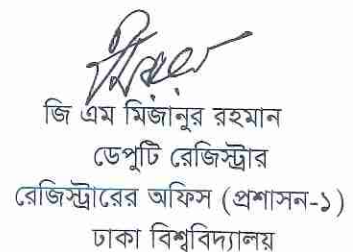 জি এম মিজানুর রহমান
ডেপুটি রেজিস্ট্রার
রেজিস্ট্রারের অফিস (প্রশাসন-১)
ঢাকা বিশ্ববিদ্যালয়